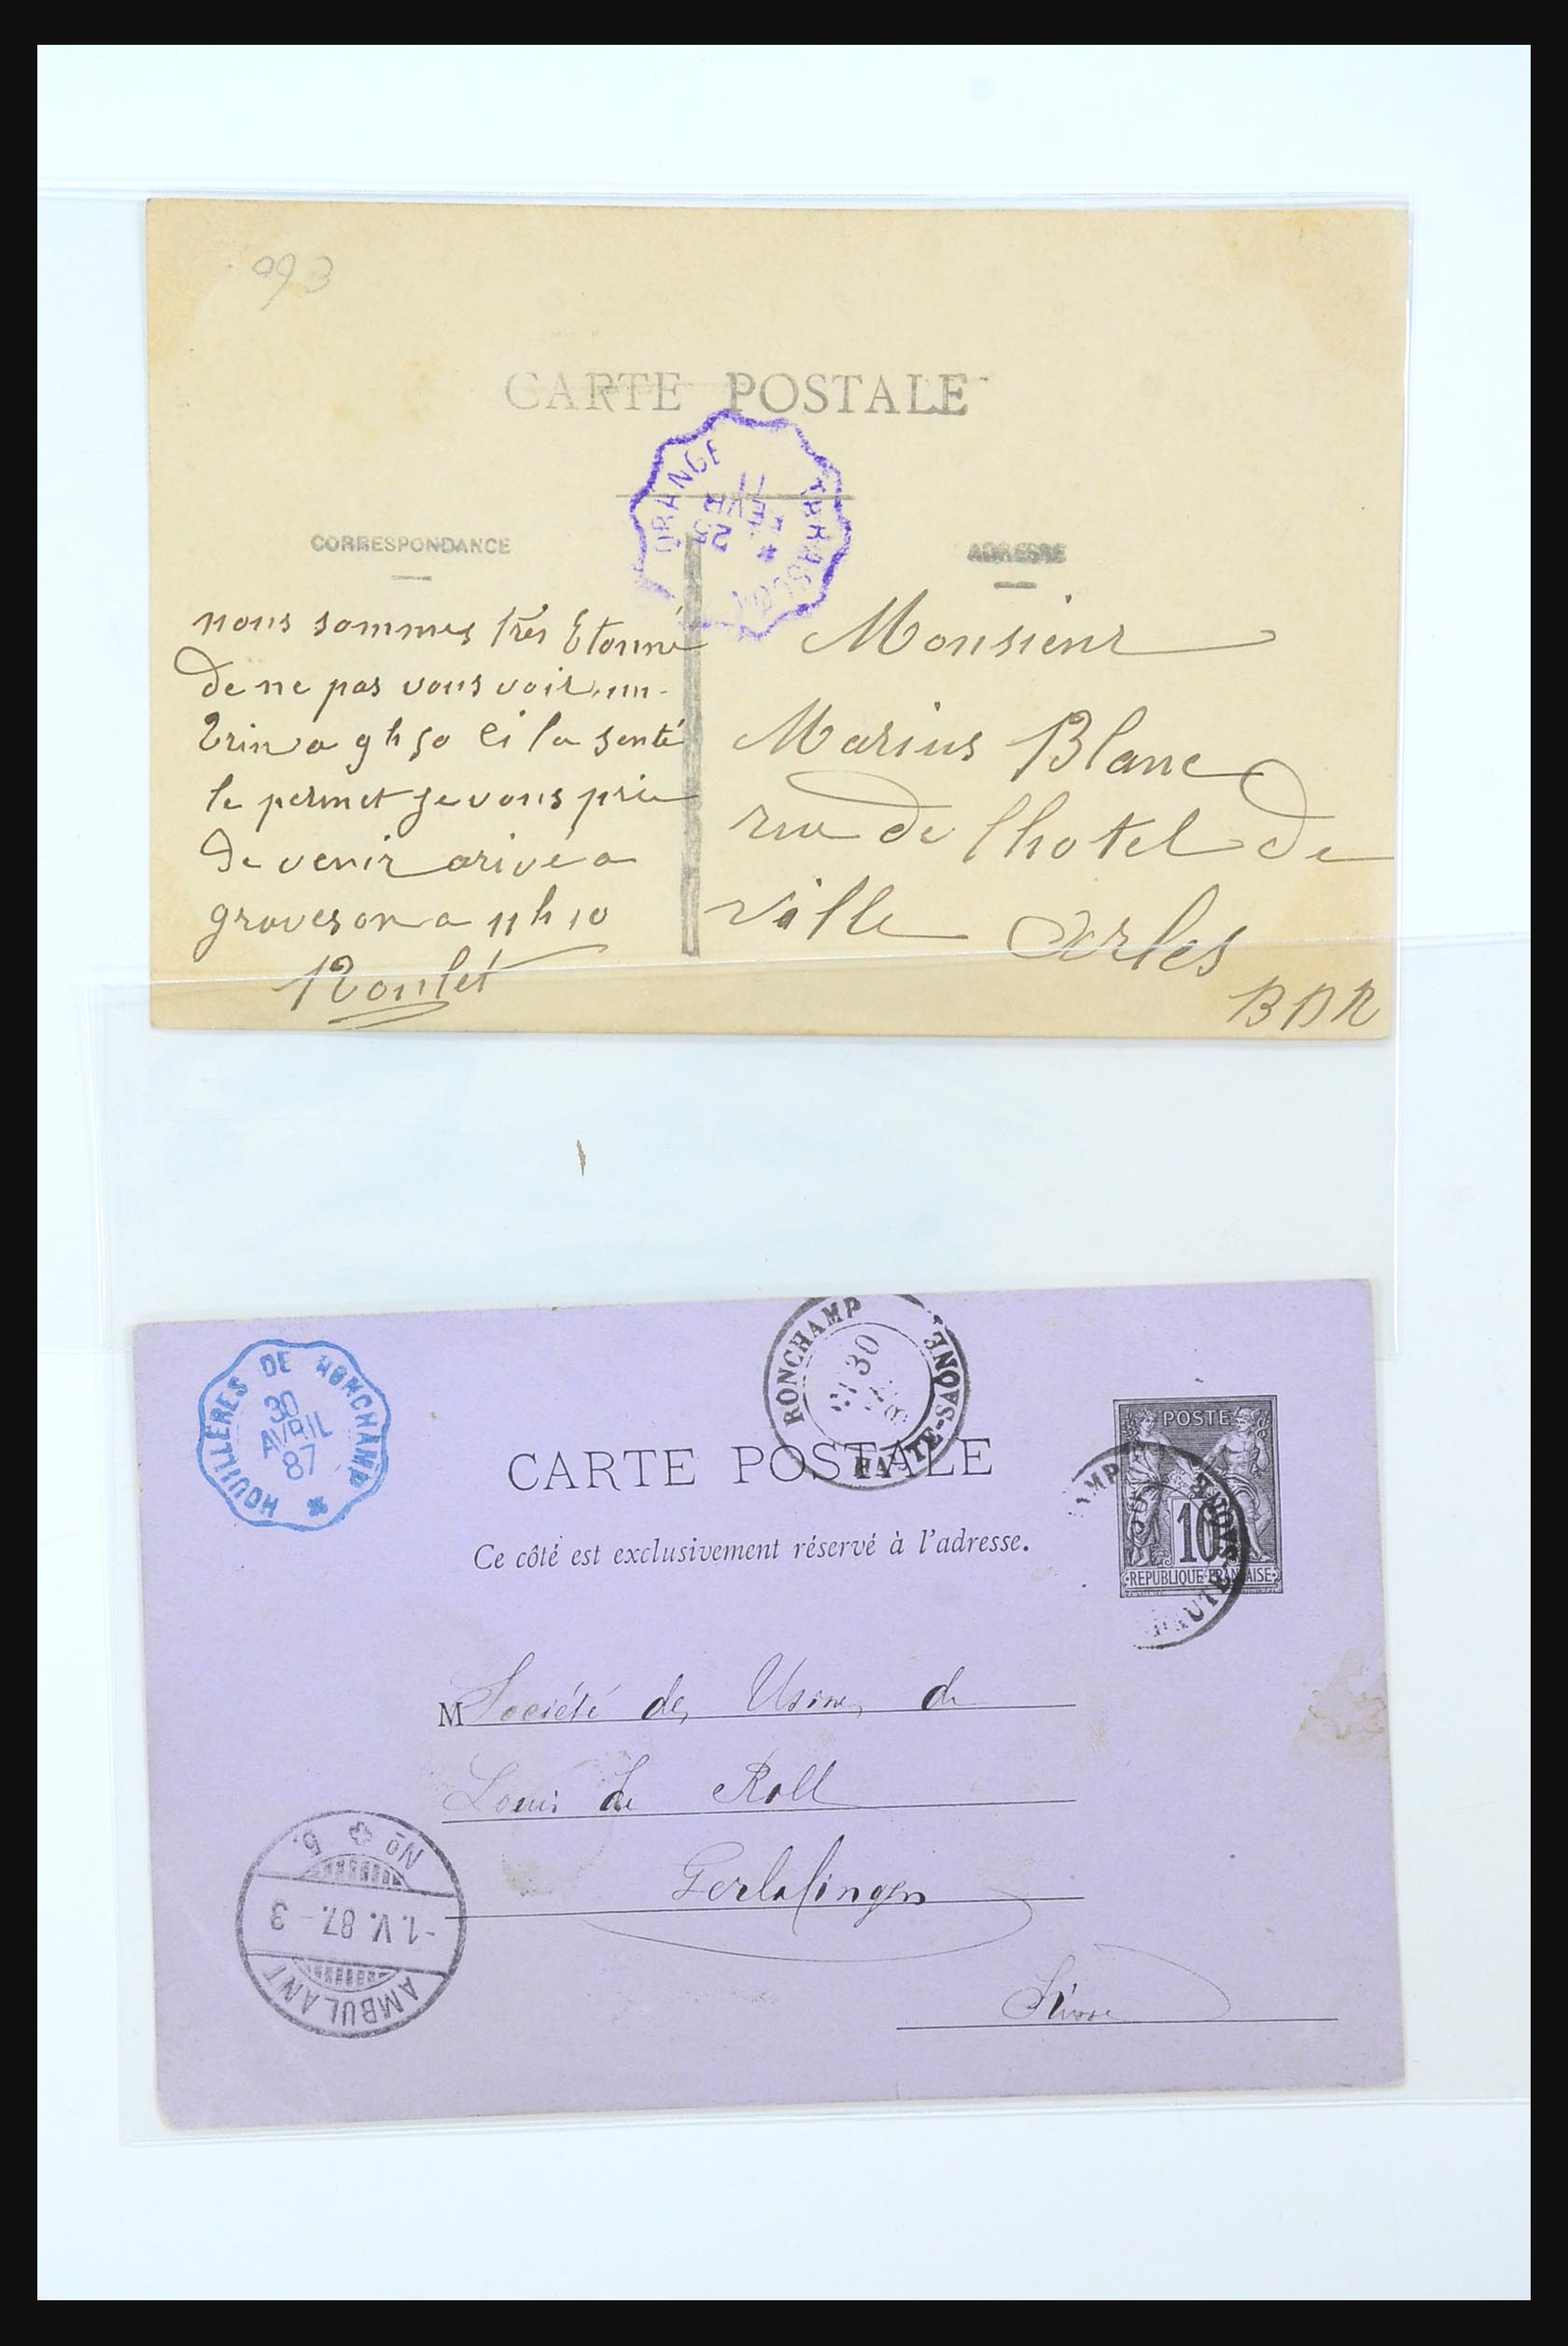 993
CARTE POSTALE
ORANGE
TARASCON
23
FEVR
11
CORRESPONDANCE
ADRESSE
nous sommes très Etonné
de ne pas vous voir. un
Trin a 9 h 50 Ci la senté
le permet je vous prie
de venir arivé a
graveson a 11 h 10
Roulet
Monsieur
Marius Blanc
rue de lhotel de
ville Arles
BDR
HOUILLÈRES DE RONCHAMP
30
AVRIL
87
RONCHAMP
30
HAUTE-SAONE
CARTE POSTALE
Ce côté est exclusivement réservé à l'adresse.
POSTE
10
REPUBLIQUE FRANÇAISE
AMP
HAUTE-SAONE
M Société des Usines de
Louis de Roll
Gerlafingen
Suisse
No 5.
-1.V.87.-3
AMBULANT